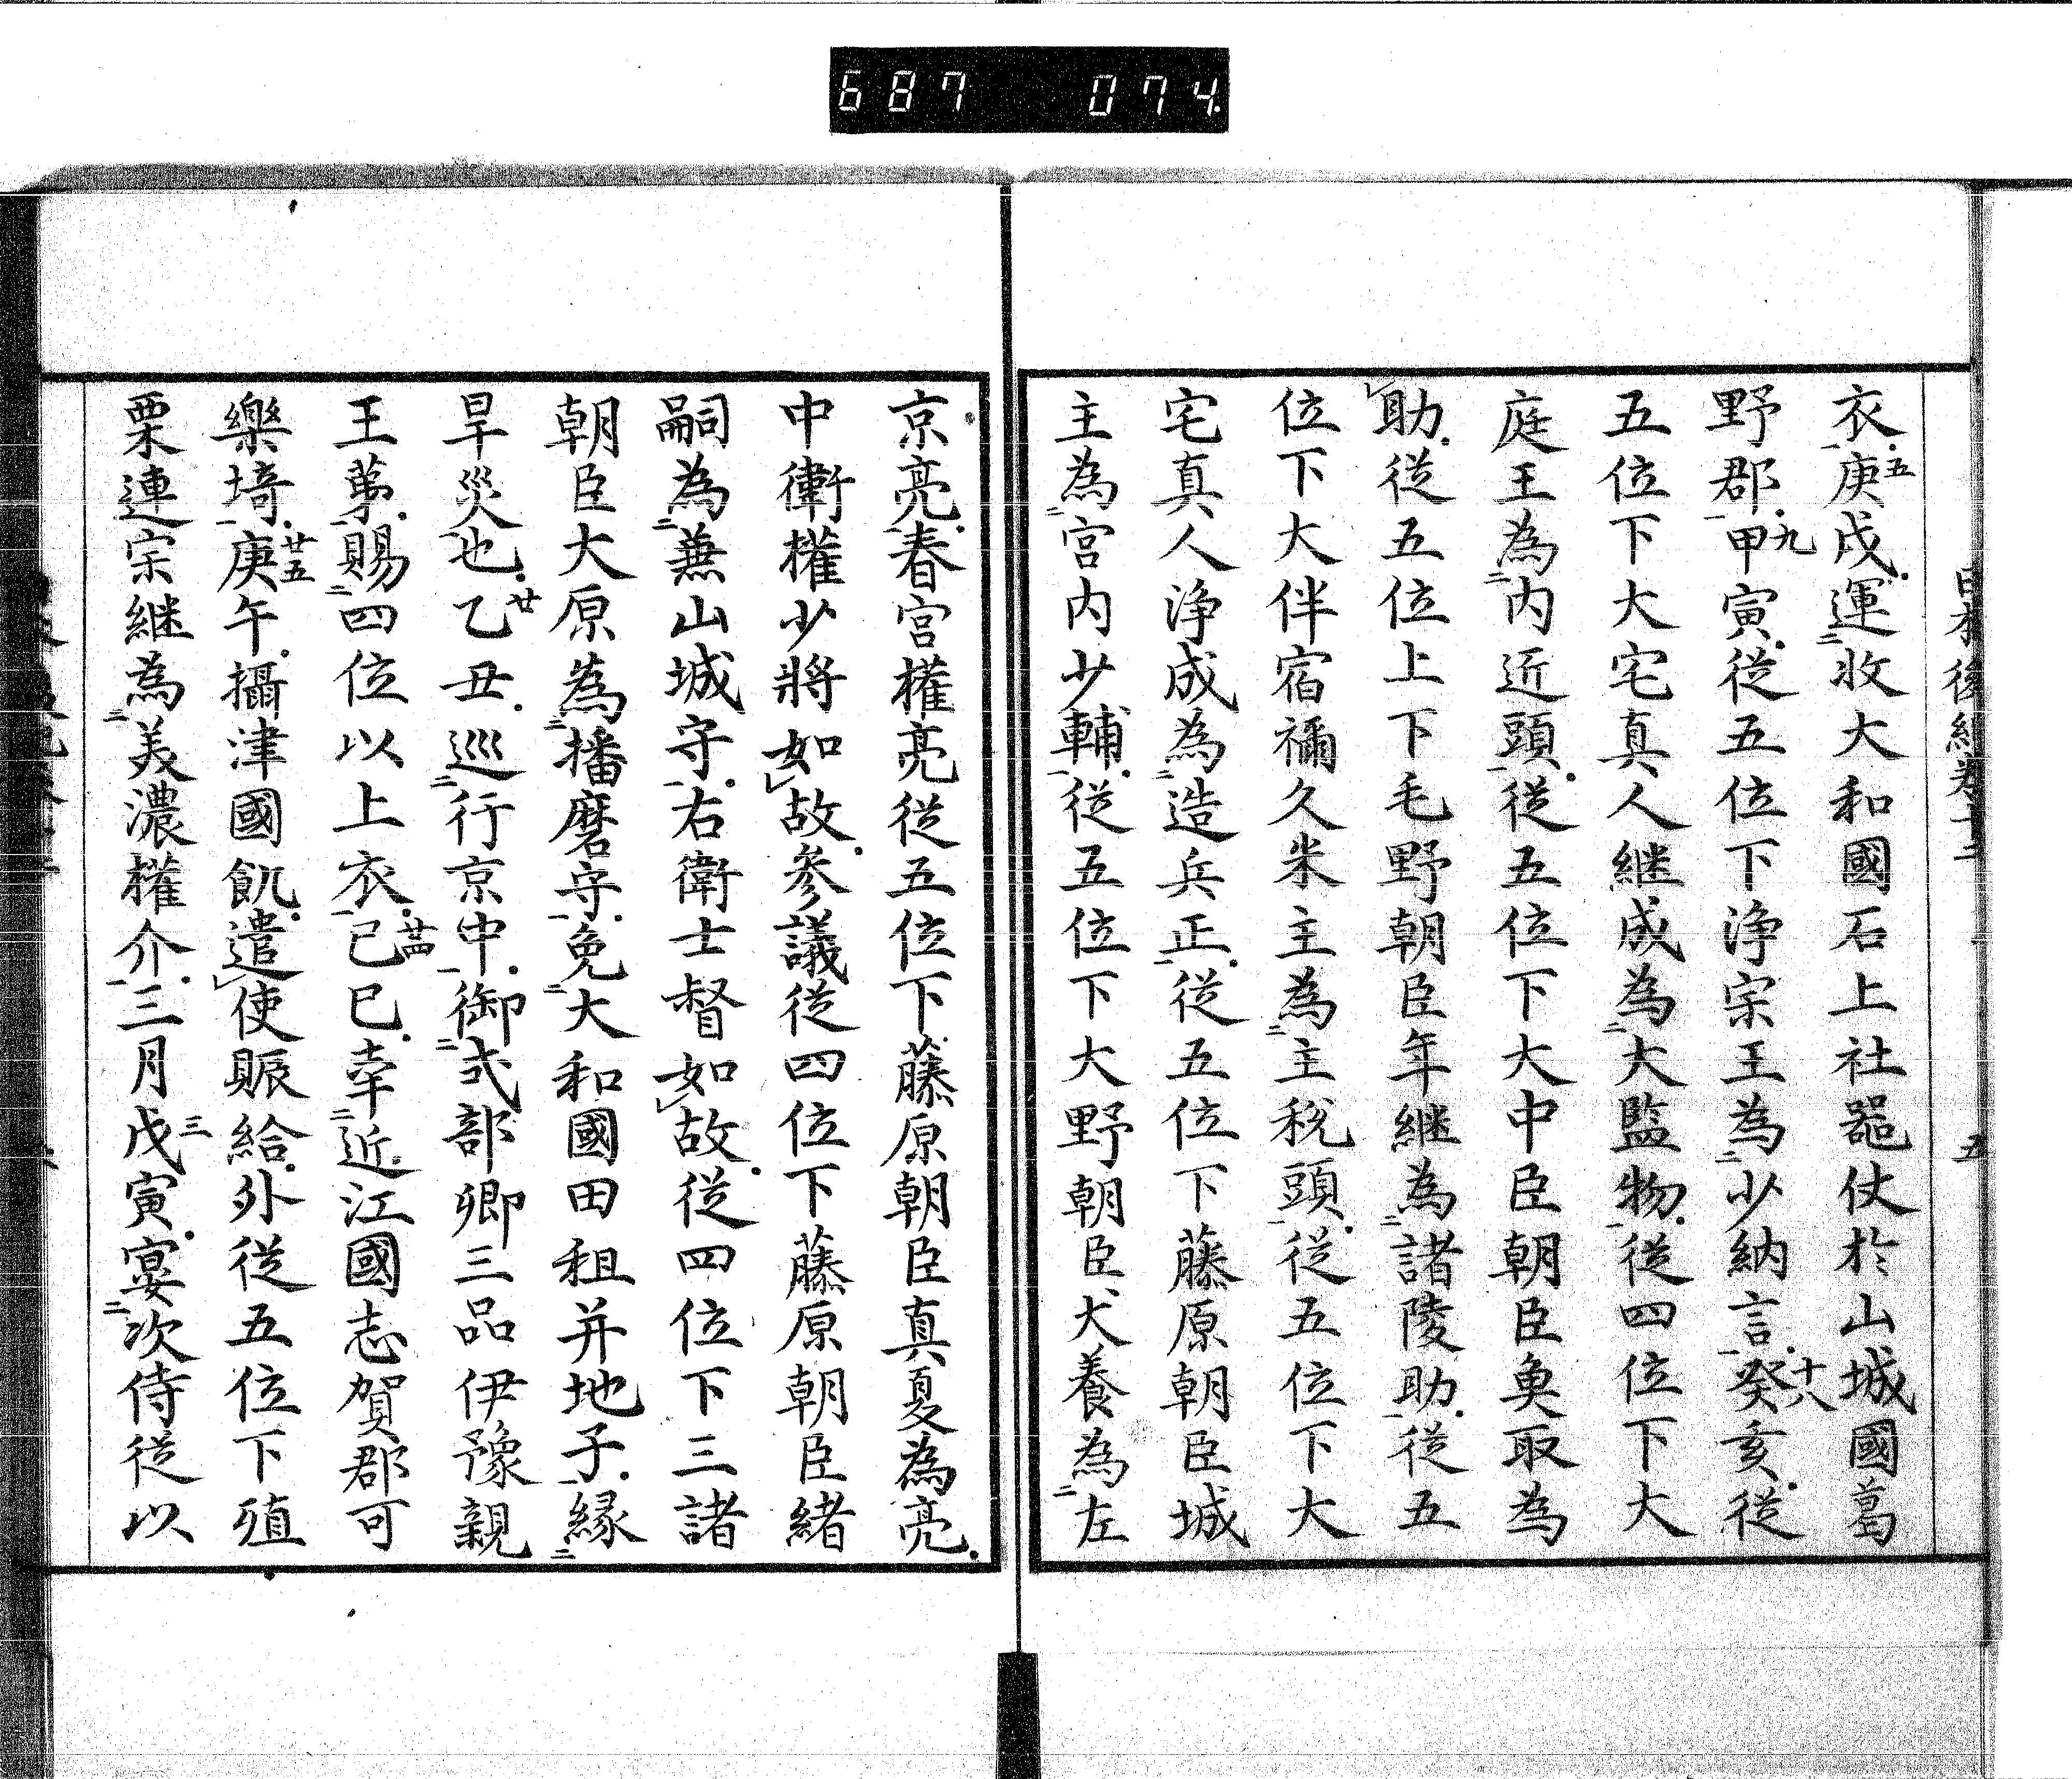 687 074
日本後紀卷十二 五
衣庚戌運收大和國石上社噐仗於山城國葛
五
野郡甲寅從五位下浄宗王為少納言癸亥從
九
十八
五位下大宅真人継成為大監物從四位下大
庭王為内匠頭從五位下大中臣朝臣魚取為
助從五位上下毛野朝臣年継為諸陵助從五
位下大伴宿禰久米主為主税頭從五位下大
宅真人浄成為造兵正從五位下藤原朝臣城
主為宮内少輔從五位下大野朝臣犬養為左
京亮春宮權亮從五位下藤原朝臣真夏為亮
中衛權少將如故參議從四位下藤原朝臣緒
嗣為兼山城守右衛士督如故從四位下三諸
朝臣大原為播磨守免大和國田租并地子縁
旱災也乙丑巡行京中御弍部卿三品伊豫親
廿
王第賜四位以上衣己巳幸近江國志賀郡可
廿四
樂埼庚午攝津國飢遣使賑給外從五位下殖
廿五
栗連宗継為美濃權介三月戊寅宴次侍從以
三